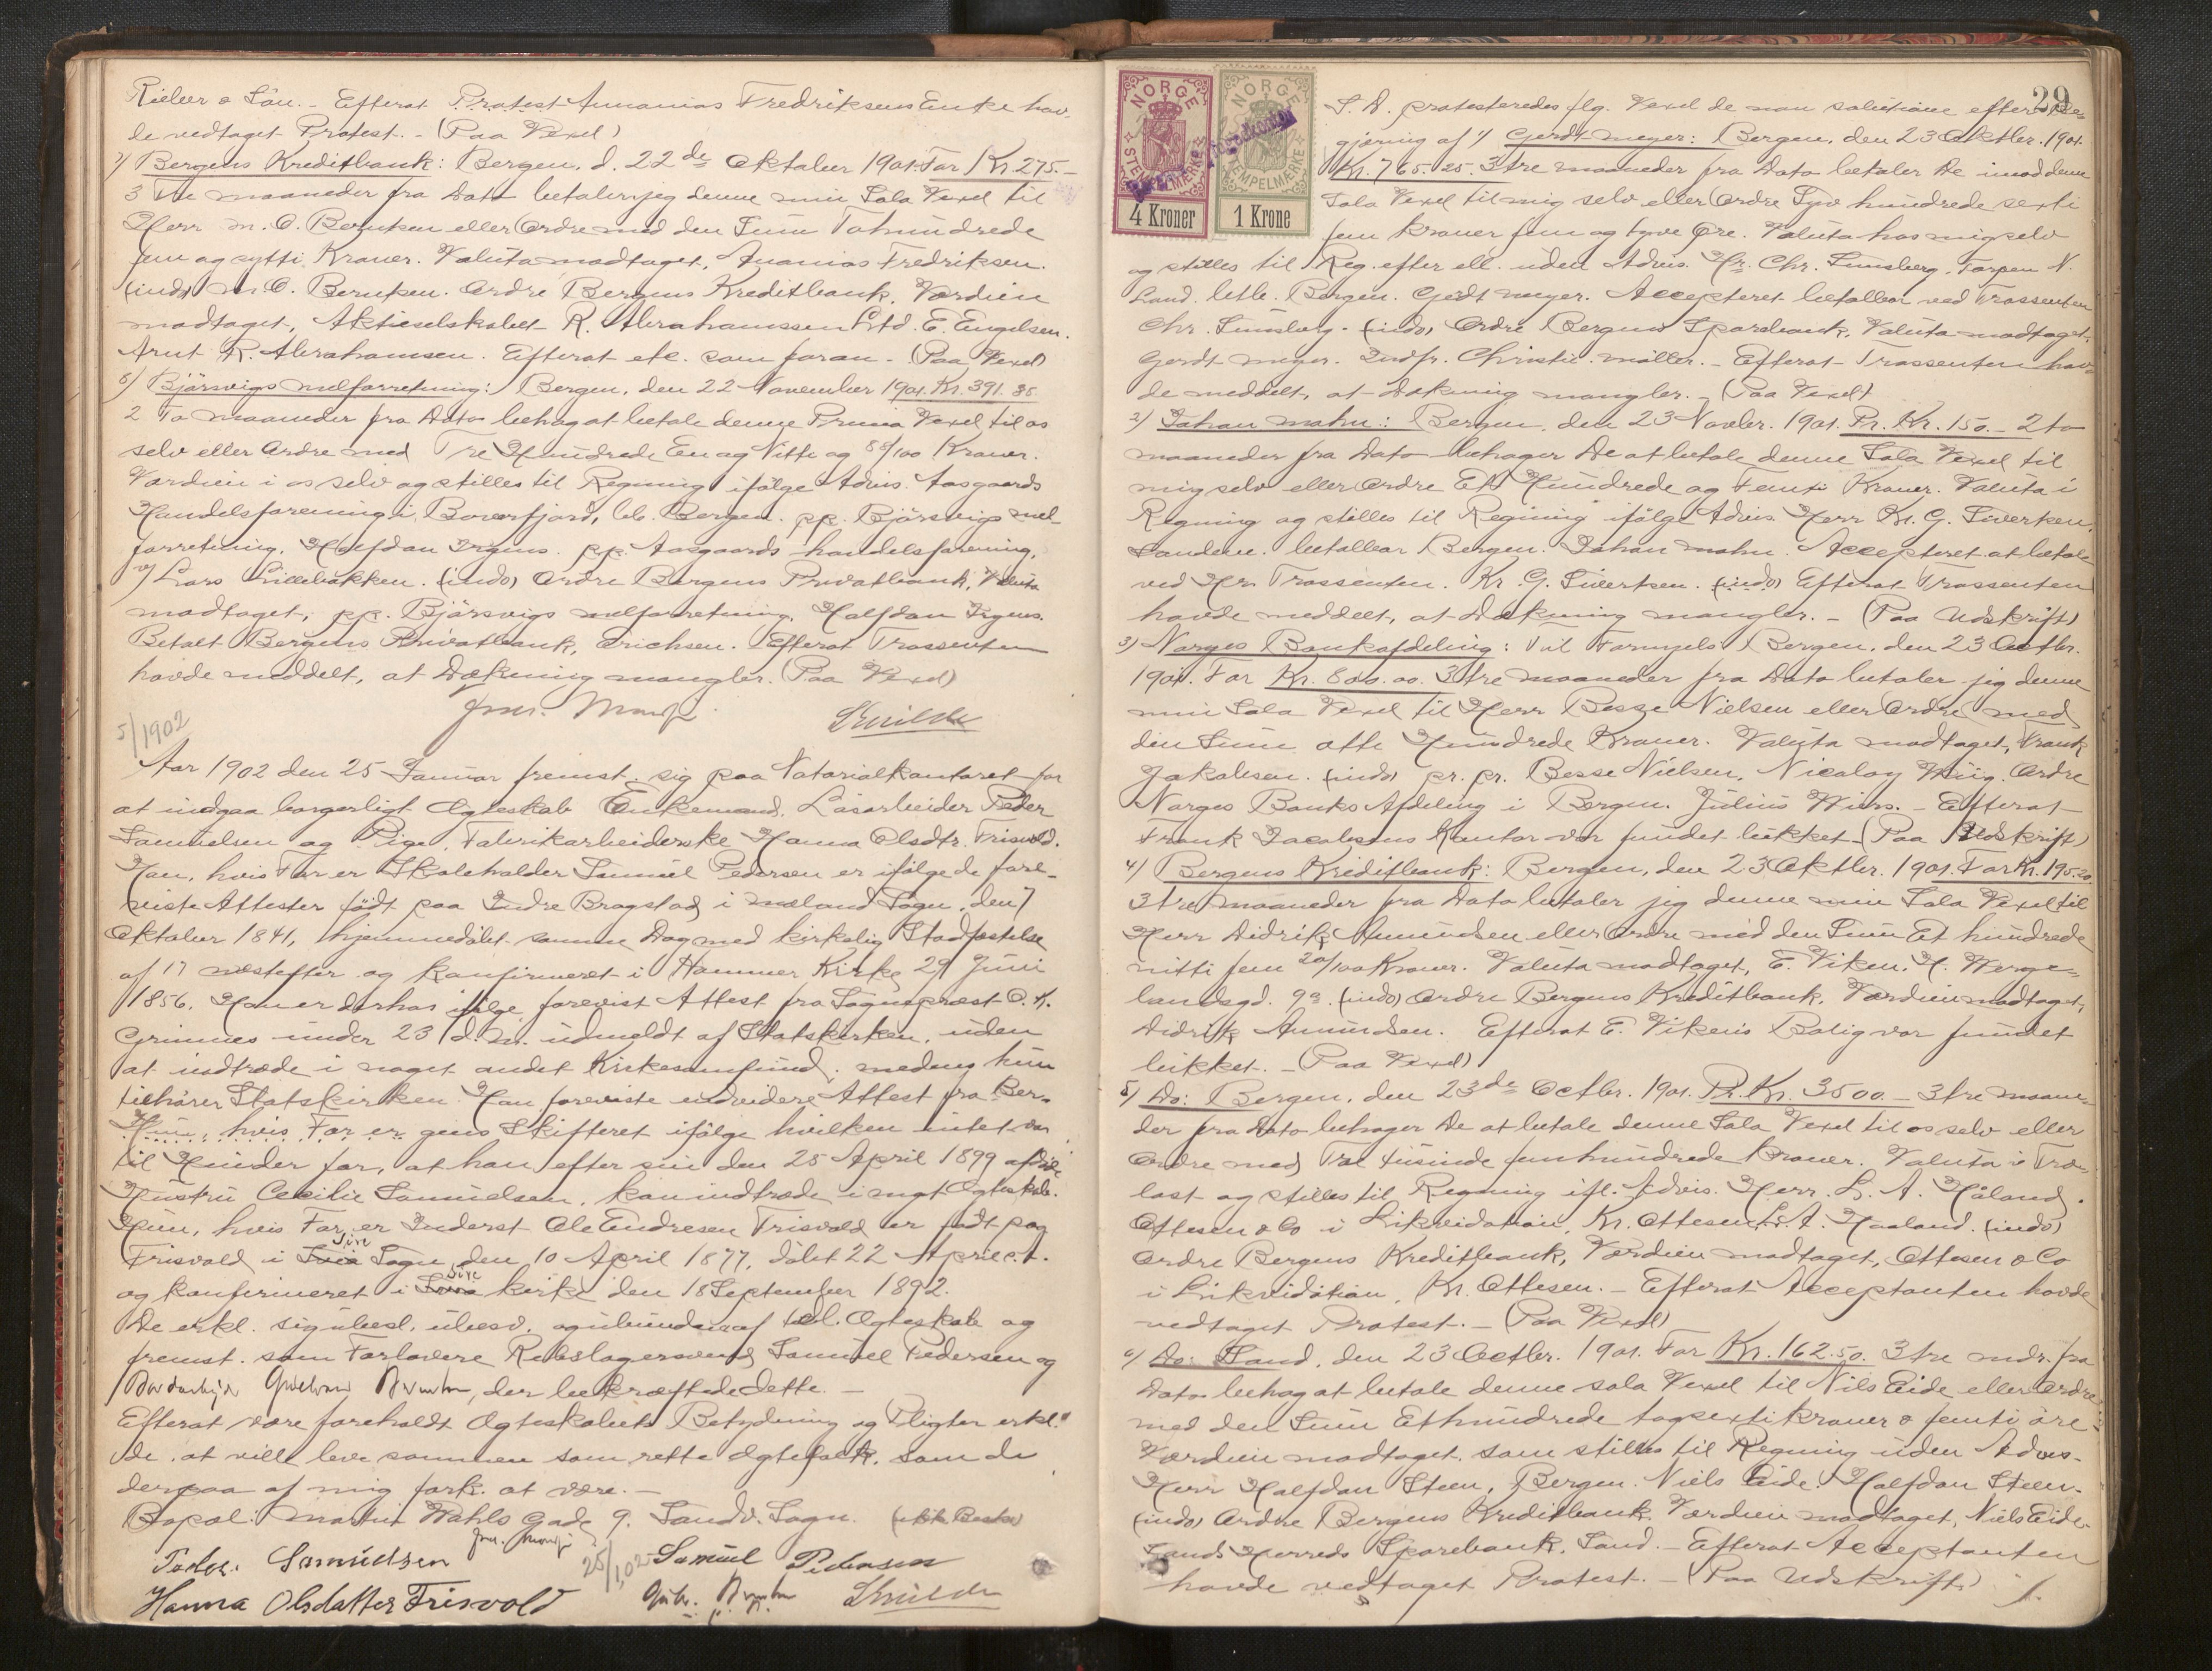 Rieber & Sön. - Efterat Protest Ananias Fredriksens Enke hav-
de vedtaget Protest. - (Paa Vexel)
7) Bergens Kreditbank: Bergen, d. 22de Oktober 1901. For Kr. 275.-
3 Tre maaneder fra Dato betaler jeg denne min Sola Vexel til
Herr M. O. Berntsen eller Ordre med den Sum Tohundrede
fem og sytti Kroner. Valuta modtaget, Ananias Fredriksen.
(indo) M. O. Berntsen. Ordre Bergens Kreditbank, Værdien
modtaget, Aktieselskabet R. Abrahamssen Ltd. E. Engelsen.
Arnt R. Abrahamsen. Efterat etc. som foran. - (Paa Vexel)
8) Bjørsvigs melforretning: Bergen, den 22 November 1901. Kr. 391.88
2 To maaneder fra Dato behag at betale denne Prima Vexel til os
selv eller Ordre med Tre Hundrede En og Nitti og 88/100 Kroner.
Værdien i os selv og stilles til Regning ifølge Advis. Aasgaards
Handelsforening i, bb. Bergen. pp. Bjørsvigs mel-
forretning, Halfdan Irgens. pp. Aasgaards handelsforening,
Lars Lillebakken. (indo) Ordre Bergens Privatbank, Valuta
modtaget, pp. Bjørsvigs melforretning, Halfdan Irgens.
Betalt Bergens Privatbank, Erichsen. Efterat Trassenten
havde meddelt, at Dækning mangler. (Paa Vexel)
5/1902
Aar 1902 den 25 Januar fremst. sig paa Notarialkontoret for
at indgaa borgerligt Ægteskab Enkemand, Løsarbeider Peder
Samuelsen og Pige, Fabrikarbeiderske Hanna Olsdtr. Frisvold.
Han, hvis Far er Skoleholder Samuel Pedersen er ifølge de fore-
viste Attester født paa Indre Bragstad i Mæland Sogn, den 7
Oktober 1841, hjemmedøbt samme Dag med kirkelig Stadfæstelse
af 17 næstefter og konfirmeret i Hammer Kirke 29 Juni
1856. Han er derhos ifølge forevist Attest fra Sognepræst O. K.
Grimnes under 23 d. M. udmeldt af Statskirken, uden
at indtræde i noget andet Kirkesamfund, medens hun
tilhører Statskirken. Han foreviste endvidere Attest fra Ber-
Hun, hvis Far er gens Skifteret ifølge hvilken intet var
til Hinder for, at han efter sin den 25 April 1899 afdøde
Hustru Cecilie Samuelsen, kan indtræde i nyt Ægteskab.
Hun, hvis Far er Inderst Ole Endresen Frisvold er født paa
Frisvold i Sire Sogn den 10 April 1877, døbt 22 April s. A.
og konfirmeret i Sire kirke den 18 September 1892.
De erkl. sig ubesl., ubesv. og ubundne af tidl. Ægteskab og
fremst. som Forlovere Rebslagersvend Samuel Pedersen og
der bekræftede dette. -
Efterat være foreholdt Ægteskabets Betydning og Pligter erkl.
de, at ville leve sammen som rette Ægtefolk, som de
derpaa af mig fork. at være. -
Bopæl: Martin Wahls Gade 9. Sandv. Sogn.
Peder Samuelsen 25/1 02 Samuel Pedersen
Hanna Olsdatter Frisvold
NORGE STEMPELMÆRKE 4 Kroner
NORGE STEMPELMÆRKE 1 Krone
29
S. D. protesteredes flg. Vexel de non solutione efter Be-
gjæring af 1) Gerdt Meyer: Bergen, den 23 Oktbr. 1901.
Kr. 765.25. 3 tre maaneder fra Dato betaler De imod denne
Sola Vexel til mig selv eller Ordre Syv hundrede sexti
fem Kroner fem og tyve Øre. Valuta hos mig selv
og stilles til Reg. efter ell. uden Advis. Hr. Chr. Sunsberg, Torpen N.
Land. betb. Bergen. Gerdt Meyer. Accepteret betalbar ved Trassenten
Chr. Sunsberg. (indo) Ordre Bergens Sparebank, Valuta modtaget,
Gerdt Meyer. Indfr. Christie. Møller. - Efterat Trassenten hav-
de meddelt, at Dækning mangler. - (Paa Vexel)
2) Johan Mohn: Bergen, den 23 Novbr. 1901. Pr. Kr. 150.- 2 to
maaneder fra Dato behager De at betale denne Sola Vexel til
mig selv eller Ordre Et Hundrede og Femti Kroner. Valuta i
Regning og stilles til Regning ifølge Advis. Herr Kr. G. Sivertsen,
Sandene. betalbar Bergen. Johan Mohn. Accepteret at betale
ved Hr. Trassenten. Kr. G. Sivertsen. (indo) Efterat Trassenten
havde meddelt, at Dækning mangler. - (Paa Udskrift)
3) Norges Bankafdeling: Bergen, den 23 Octbr.
1901. For Kr. 800.00. 3 tre maaneder fra Dato betaler jeg denne
min Sola Vexel til Herr Besse Nielsen eller Ordre med
den Sum otte Hundrede Kroner. Valuta modtaget, Frank
Jakobsen. (indo) pr. pr. Besse Nielsen, Nicolay Wiig. Ordre
Norges Banks Afdeling i Bergen. Julius Wiers. - Efterat
Frank Jacobsens Kontor var fundet lukket. (Paa Udskrift)
4) Bergens Kreditbank: Bergen, den 23 Oktbr. 1901. For Kr. 195.20
3 tre maaneder fra Dato betaler jeg denne min Sola Vexel til
Herr Didrik Amundsen eller Ordre med den Sum Et hundrede
nitti fem 20/100 Kroner. Valuta modtaget, E. Viken, H. Werge-
landsgd. 9a. (indo) Ordre Bergens Kreditbank, Værdien modtaget,
Didrik Amundsen. Efterat E. Vikens Bolig var fundet
lukket. - (Paa Vexel)
5) Do: Bergen, den 23de Octbr. 1901. Pr. Kr. 3500.- 3 tre maane-
der fra Dato behager De at betale denne Sola Vexel til os selv eller
Ordre med Tre tusinde femhundrede Kroner. Valuta i Træ-
last og stilles til Regning ifl. Advis. Herr L. A. Håland.
Ottesen & Co i Likvidation, Kr. Ottesen. L. A. Haaland. (indo)
Ordre Bergens Kreditbank, Værdien modtaget, Ottesen & Co
i Likvidation, Kr. Ottesen. - Efterat Acceptanten havde
vedtaget Protest. - (Paa Vexel)
6) Do: Sand, den 23 Octbr. 1901. For Kr. 162.50. 3 tre mdr. fra
Dato behag at betale denne sola Vexel til Nils Eide eller Ordre
med den Sum Ethundrede togsexti kroner & femti øre.
Værdien modtaget, som stilles til Regning uden Advis.
Herr Halfdan Steen, Bergen. Niels Eide. Halfdan Steen.
(indo) Ordre Bergens Kreditbank. Værdien modtaget, Niels Eide.
Sands Herreds Sparebank, Sand. - Efterat Acceptanten
havde vedtaget Protest. - (Paa Udskrift)